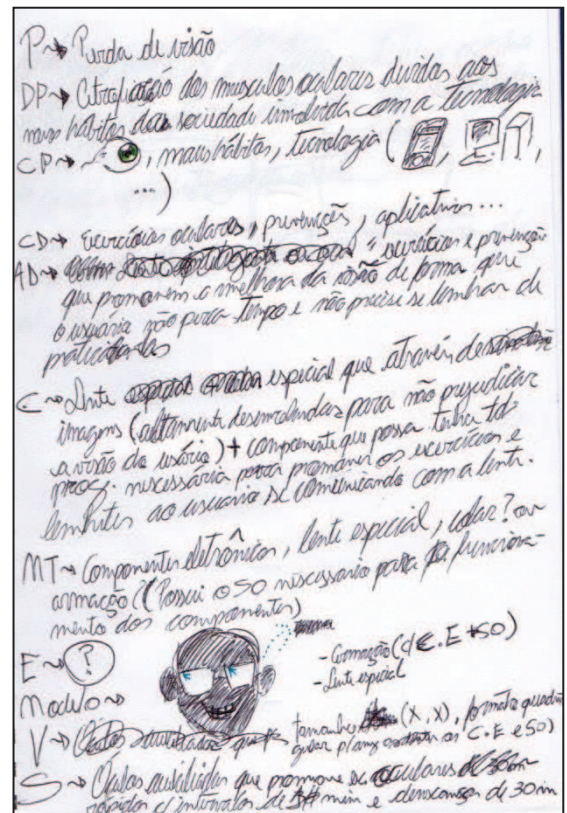 P→ Perda de visão
DP→ Atrofiação dos musculos oculares dividas aos
maus hábitos da sociedade involvida com a tecnologia
CP→ , maus hábitos, tecnologia ( , ,
...)
CD→ Exercícios oculares, prevenções, aplicativos...
AD→ exercícios e prevenção
que promovem a melhora da visão de forma que
o usuário não perca tempo e não precise se lembrar de
praticá-los
C→ Lente especial que através de
imagens (altamente desenvolvidas para não prejudicar
a visão do usário) + componente que possa tenha td
proc. nescessário para promover os exercícios e
lembretes ao usuario se comunicando com a lente.
MT→ Componentes eletrônicos, lente especial, colar? ou
armação (Possui o SO nescessario para funciona-
mento dos componentes)
E→ ?
- armação (d C.E + SO)
- Lente especial
Modelo→
V→ tamanho (X, X), formato quadran
gular p/ armação os C.E e SO)
S→ Oculos auxiliador que promove ex oculares
rápidos c/ intervalos de min e descanços de 30 min